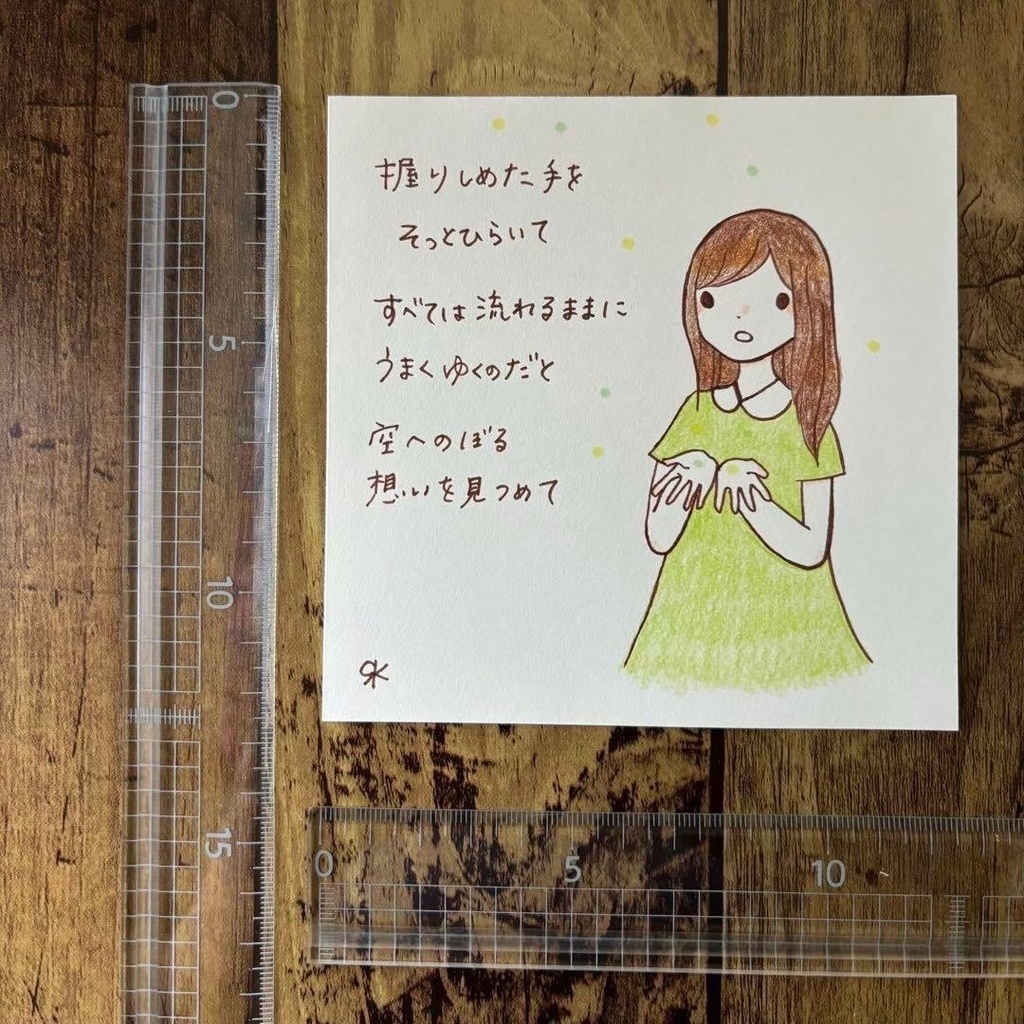 握りしめた手を
そっとひらいて
すべては流れるままに
うまくゆくのだと
空へのぼる
想いを見つめて
0
5
10
15
0
5
10